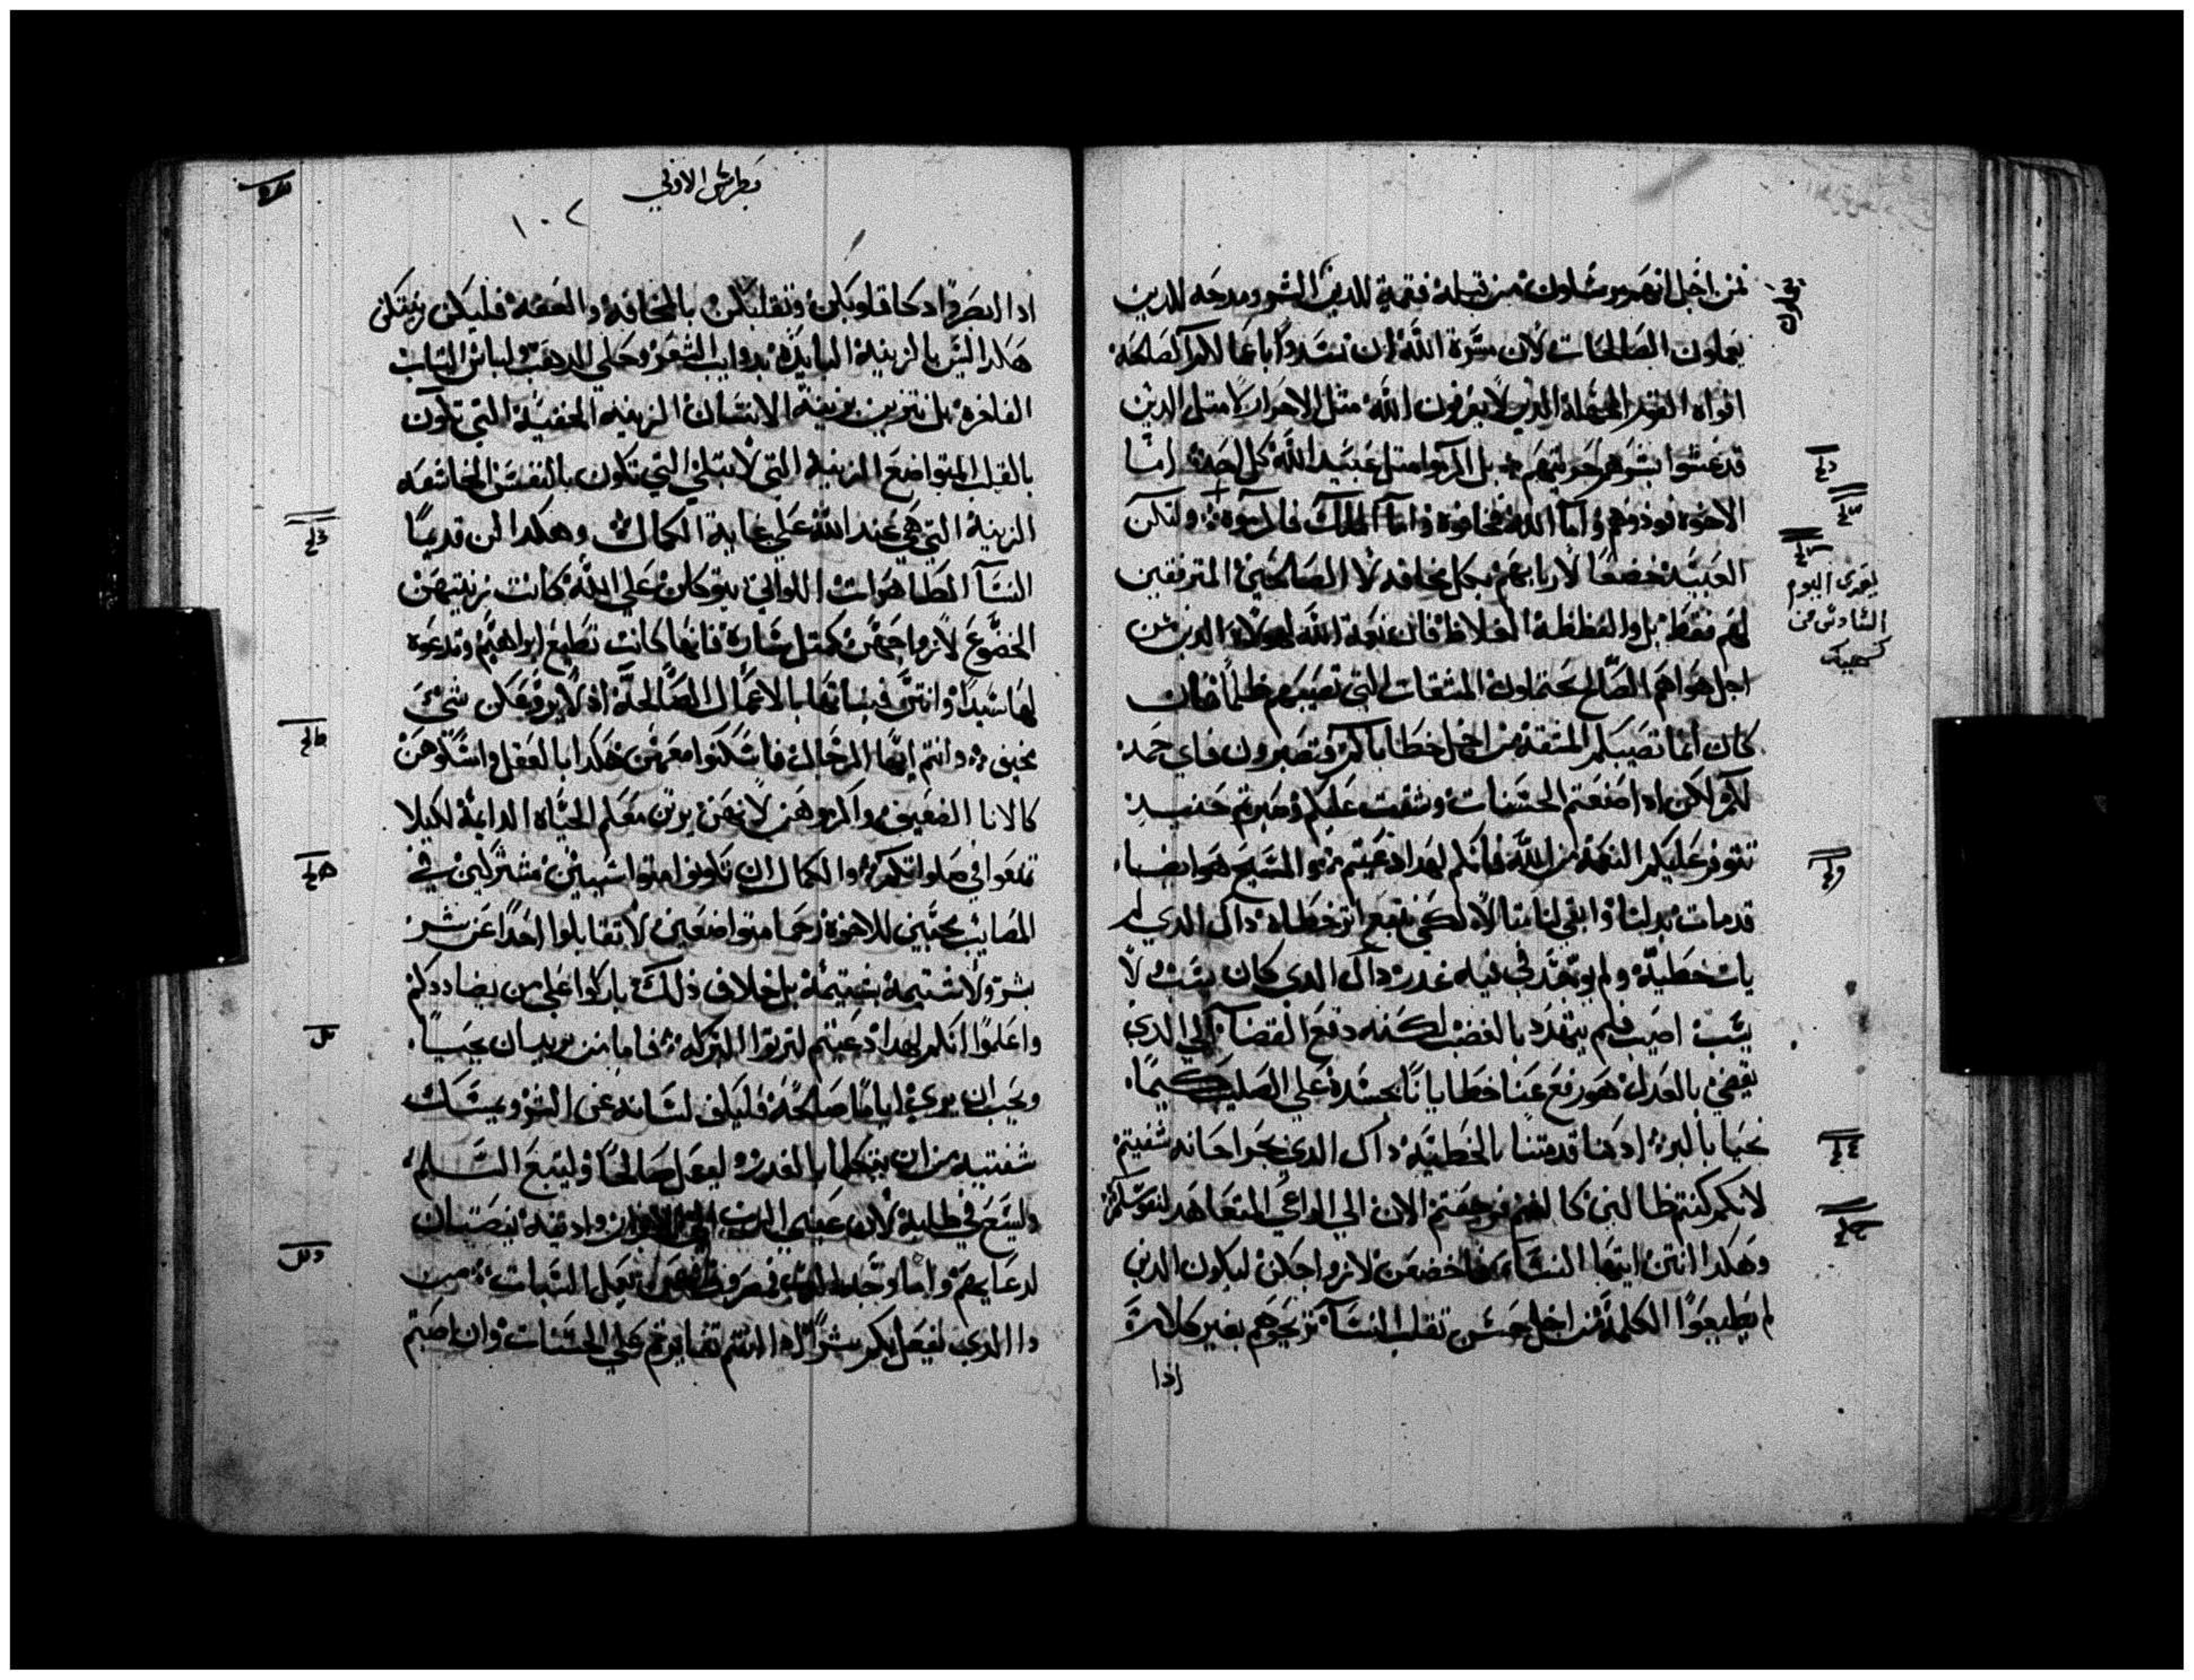 من اجل انهم مرسلون من قبله نقمة للدين الشر ومدحه للدين
يعملون الصالحات لان مسرة الله ان تسدوا باعمالكم الصالحة
افواه القوم الجهلة الدين لا يعرفون الله مثل الاحرار لا مثل الدين
قد غشوا بشرهم حريتهم بل اكرموا مثل عبيد الله كل احد اما
الاخوة فودوهم واما الله فخافوه واما الملك فاكرموه ولتكن
العبيد خضعا لاربابهم بكل مخافه لا الصالحين المترفقين
لهم فقط بل والفظظة الغلاظ فان نعمة الله لهولاء الدين من
اجل هواهم الصالح يحتملون المشقات التي تصيبهم ظلما فان
كان انما تصيبكم المشقة من اجل خطاياكم وتصبرون فاي حمد
لكم لكن ادا صنعتم الحسنات وشقت عليكم وصبرتم حنيد
تتوفر عليكم النعمة من الله فانكم لهدا دعيتم والمسيح هو ايضا
قد مات بدلنا وابقي لنا متالا لكي نتبع اتر خطاه داك الدي لم
يات خطية ولم يوجد في فيه غدر داك الدي كان يشب ولا
يشب اصيب فلم يتهدد بالغضب لكنه دفع القضا الي الدي
يقضي بالعدل هو رفع عنا خطايانا بجسده علي الصليب كيما
نحيا بالبر اد هنا قد متنا بالخطية داك الدي بجراحاته شفيتم
لانكم كنتم ضالين كالغنم فرجعتم الان الي الراعي المتعاهد لنفوسكم
وهكدا انتن ايتها النساء فاخضعن لازواجكن ليكون الدين
لم يطيعوا الكلمة من اجل حسن تقلب النسا تربحوهم بغير كلام
ادا
يقرى اليوم
السادس من
كيهك
بطرس الاولي
١٠٢
ادا ابصروا دكا قلوبكن وتقلبكن بالمخافة والعفة فليكن زينتكن
هكدا ليس بالزينة البايدة بدوايب الشعر وحلي الدهب ولباس التياب
الفاخرة بل تتزين بزينة الانسان الزينه الخفية التي تكون
بالقلب المتواضع الزينة التي لا تبلي التي تكون بالنفس الخاشعه
الزينة التي هي عند الله علي غاية الكمال وهكدا كن قديما
النسآ المطاهرات اللواتي يتوكلن علي الله كانت زينتهن
الخضوع لازواجهن كمتل سارة فانها كانت تطيع ابراهيم وتدعوه
لها سيدا وانتن فبناتها بالاعمال الصالحة اد لا يروعكن شي
مخيف وانتم ايها الرجال فاسكنوا معهن هكدا بالعقل وامسكوهن
كالانا الضعيف واكرموهن لانهن يرتن معكم الحياه الدايمة لكيلا
تمنعوا في صلواتكم والكمال ان تكونوا متواسيين مشتركين في
المصايب محبين للاخوة رحما متواضعين لا تقابلوا احدا عن شر
بشر ولا شتيمة بشتيمة بل خلاف دلك باركوا علي من يضاددكم
واعلموا انكم لهدا دعيتم لترتوا البركة فاما من يريد ان يحيا
ويحب ان يري اياما صالحة فليكف لسانه عن الشر ويمسك
شفتيه من ان يتكلما بالغدر وليعمل صالحا وليتبع السلم
وليسع في طلبه لان عيني الرب الي الابرار وادنيه ينصتان
لدعايهم واما وجه الرب فمصروف عن يعمل السيات من
دا الدي يفعل بكم شرا ادا انتم تغايرتم علي الحسنات وان اصبتم